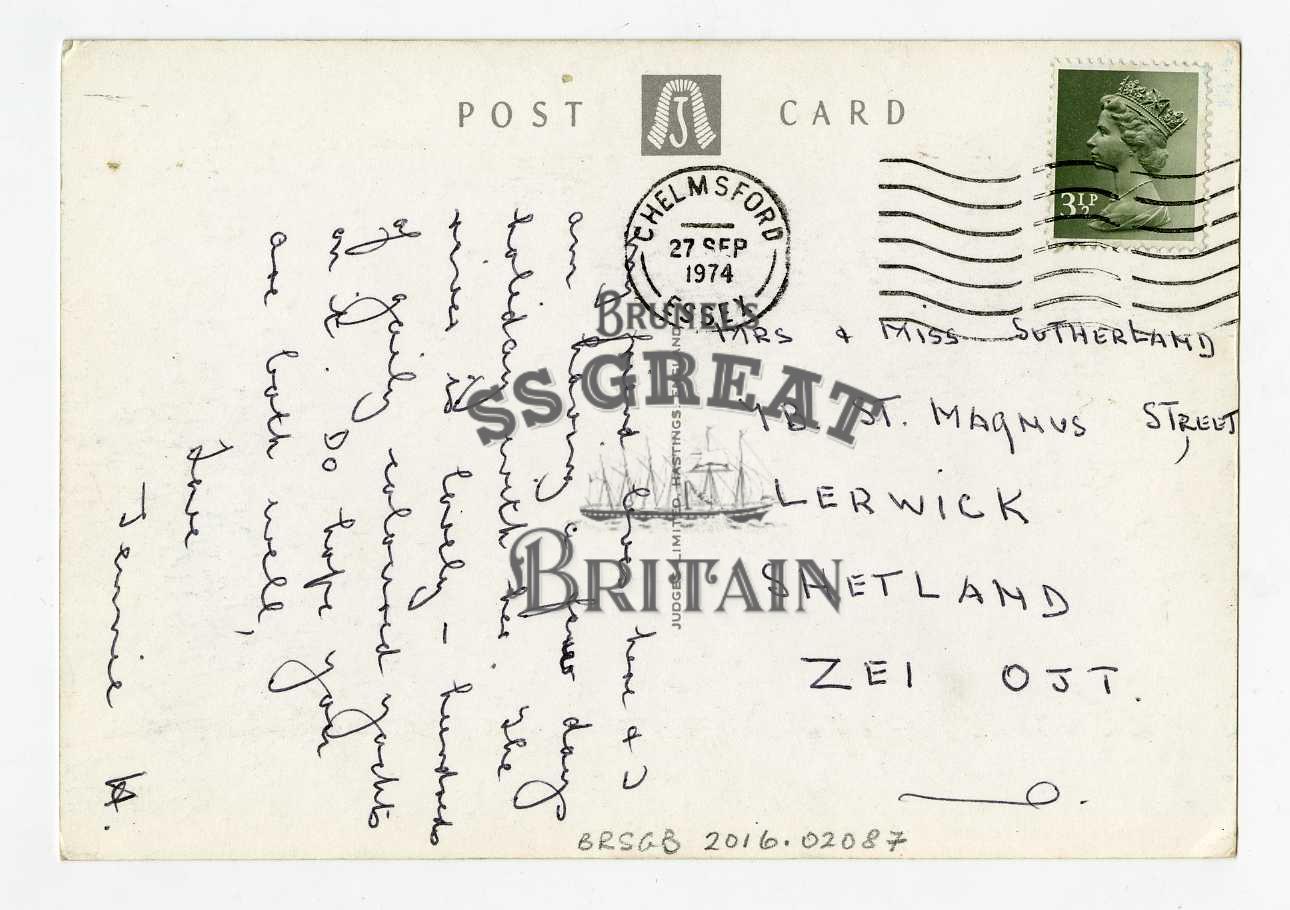 POST CARD
J
CHELMSFORD
27 SEP
1974
ESSEX
3½P
friend lives here & I
am having a few days
holiday with her. The
river is lovely – hundreds
of gaily coloured yachts
on it. Do hope you
are both well,
Love
– Jennie
MRS & MISS SUTHERLAND
ST. MAGNUS STREET,
LERWICK
SHETLAND
ZE1 OJT.
JUDGES LIMITED, HASTINGS, ENGLAND
BRUNEL'S
SS GREAT
BRITAIN
BRSGB 2016.02087